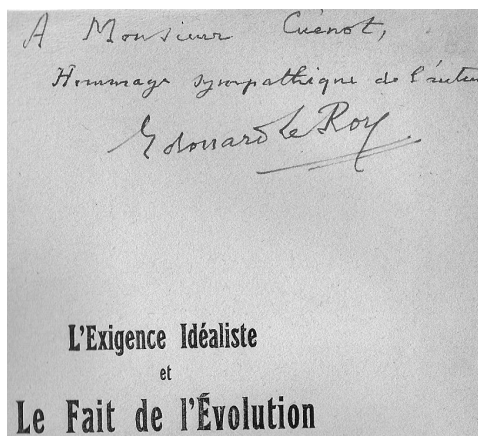 A Monsieur Cuénot,
Hommage sympathique de l'auteur
Edouard Le Roy
L'Exigence Idéaliste
et
Le Fait de l'Évolution